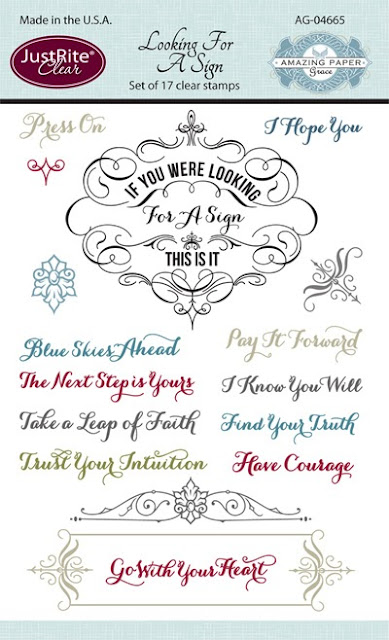 Made in the U.S.A.
AG-04665
JustRite®
Clear
Looking For
A Sign
Set of 17 clear stamps
AMAZING PAPER
Grace
Press On
I Hope You
IF YOU WERE LOOKING
For A Sign
THIS IS IT
Blue Skies Ahead
Pay It Forward
The Next Step is Yours
I Know You Will
Take a Leap of Faith
Find Your Truth
Trust Your Intuition
Have Courage
Go With Your Heart